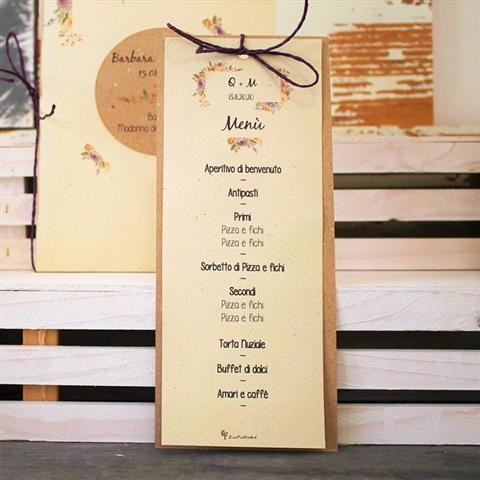 Barbara
15.0
Ba
Madonna de
Q + M
15.11.2020
Menù
Aperitivo di benvenuto
~
Antipasti
~
Primi
Pizza e fichi
Pizza e fichi
~
Sorbetto di Pizza e fichi
~
Secondi
Pizza e fichi
Pizza e fichi
~
Torta Nuziale
~
Buffet di dolci
~
Amari e caffè
~
EcoFattoArt